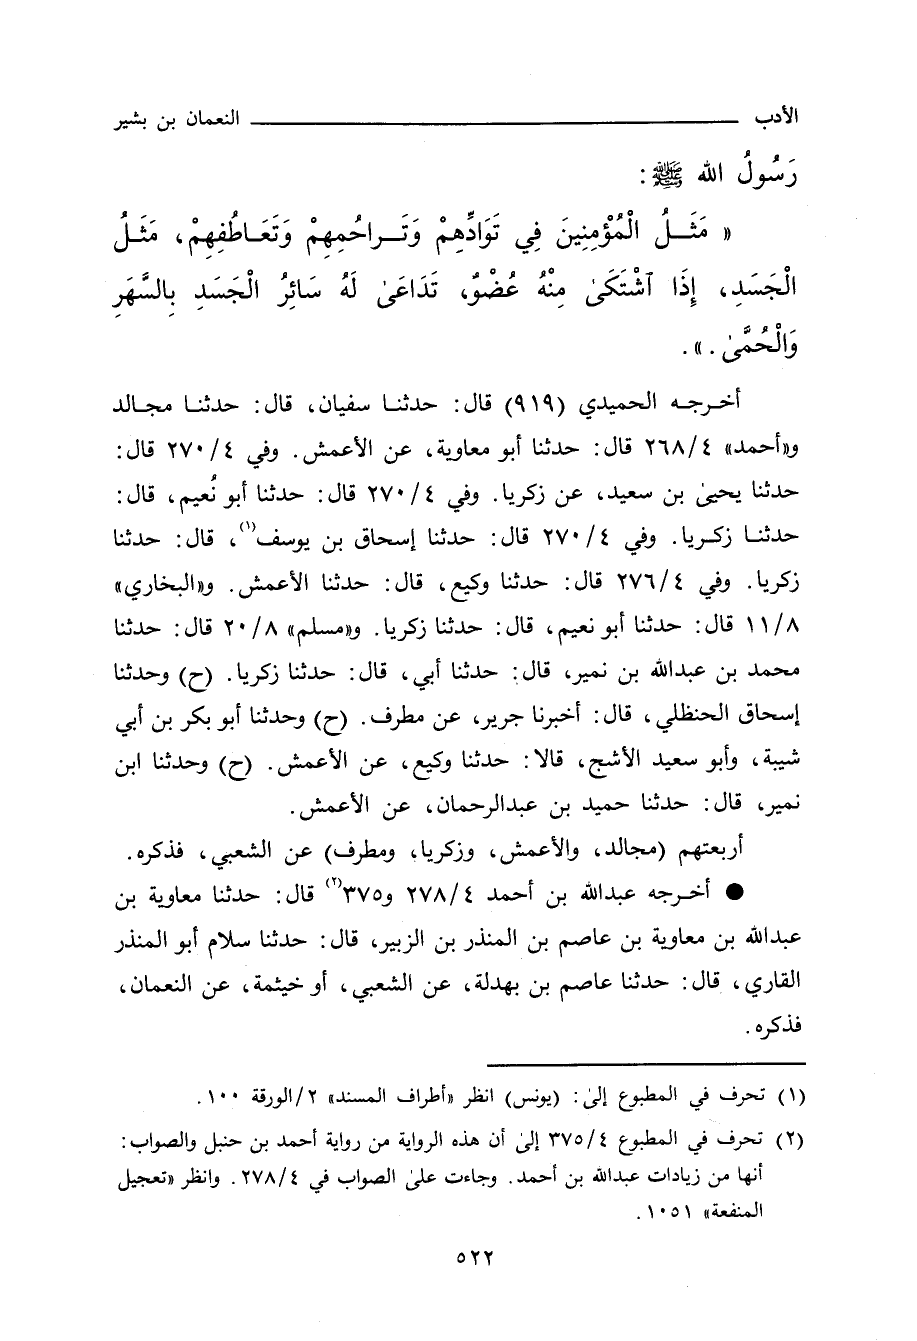 الأدب ــــــــــــــــــــ النعمان بن بشير
رَسُولُ الله ﷺ :
« مَثَـلُ الْمُؤْمِنِينَ فِي تَوَادِّهِمْ وَتَـراحُمِهِمْ وَتَعَـاطُفِهِمْ، مَثَـلُ
الْجَسَدِ، إِذَا ٱشْتَكَىٰ مِنْهُ عُضْوٌ، تَدَاعَىٰ لَهُ سَائِرُ الْجَسَدِ بِالسَّهَرِ
وَالْحُمَّىٰ . ».
أخـرجـه الحميدي (٩١٩) قال: حدثنـا سفيان، قال: حدثنـا مجـالد
و«أحمد» ٢٦٨/٤ قال: حدثنا أبو معاوية، عن الأعمش. وفي ٢٧٠/٤ قال:
حدثنا يحيىٰ بن سعيد، عن زكريا. وفي ٢٧٠/٤ قال: حدثنا أبو نُعيم، قال:
حدثنـا زكـريا. وفي ٢٧٠/٤ قال: حدثنا إسحاق بن يوسف(١)، قال: حدثنا
زكريا. وفي ٢٧٦/٤ قال: حدثنا وكيع، قال: حدثنا الأعمش. و«البخاري»
١١/٨ قال: حدثنا أبو نعيم، قال: حدثنا زكريا. و«مسلم» ٢٠/٨ قال: حدثنا
محمد بن عبدالله بن نمير، قال: حدثنا أبي، قال: حدثنا زكريا. (ح) وحدثنا
إسحاق الحنظلي، قال: أخبرنا جرير، عن مطرف. (ح) وحدثنا أبو بكر بن أبي
شيبة، وأبو سعيد الأشج، قالا: حدثنا وكيع، عن الأعمش. (ح) وحدثنا ابن
نمير، قال: حدثنا حميد بن عبدالرحمان، عن الأعمش.
أربعتهم (مجالد، والأعمش، وزكريا، ومطرف) عن الشعبي، فذكره.
● أخـرجه عبدالله بن أحمد ٢٧٨/٤ و٣٧٥(٢) قال: حدثنا معاوية بن
عبدالله بن معاوية بن عاصم بن المنذر بن الزبير، قال: حدثنا سلام أبو المنذر
القاري، قال: حدثنا عاصم بن بهدلة، عن الشعبي، أو خيثمة، عن النعمان،
فذكره.
(١) تحرف في المطبوع إلىٰ: (يونس) انظر «أطراف المسند» ٢/الورقة ١٠٠.
(٢) تحرف في المطبوع ٣٧٥/٤ إلىٰ أن هذه الرواية من رواية أحمد بن حنبل والصواب:
أنها من زيادات عبدالله بن أحمد. وجاءت علىٰ الصواب في ٢٧٨/٤. وانظر «تعجيل
المنفعة» ١٠٥١.
٥٢٢